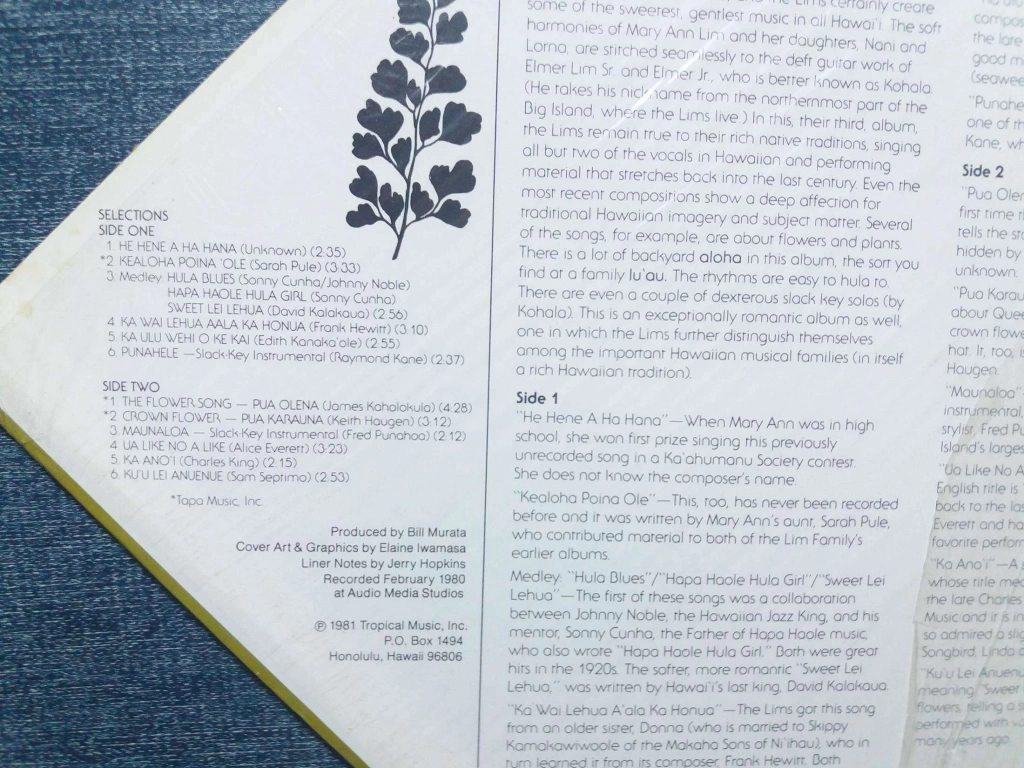 SELECTIONS
SIDE ONE
1. HE HENE A HA HANA (Unknown) (2:35)
*2. KEALOHA POINA 'OLE (Sarah Pule) (3:33)
3. Medley: HULA BLUES (Sonny Cunha/Johnny Noble)
HAPA HAOLE HULA GIRL (Sonny Cunha)
SWEET LEI LEHUA (David Kalakaua) (2:56)
4. KA WAI LEHUA AALA KA HONUA (Frank Hewitt) (3:10)
5. KA ULU WEHI O KE KAI (Edith Kanaka'ole) (2:55)
6. PUNAHELE — Slack-Key Instrumental (Raymond Kane) (2:37)
SIDE TWO
*1. THE FLOWER SONG — PUA OLENA (James Kaholokula) (4:28)
*2. CROWN FLOWER — PUA KARAUNA (Keith Haugen) (3:12)
3. MAUNALOA — Slack-Key Instrumental (Fred Punahoa) (2:12)
4. UA LIKE NO A LIKE (Alice Everett) (3:23)
5. KA ANO'I (Charles King) (2:15)
6. KU'U LEI ANUENUE (Sam Septimo) (2:53)
*Tapa Music, Inc.
Produced by Bill Murata
Cover Art & Graphics by Elaine Iwamasa
Liner Notes by Jerry Hopkins
Recorded February 1980
at Audio Media Studios
℗ 1981 Tropical Music, Inc.
P.O. Box 1494
Honolulu, Hawaii 96806
and the Lims certainly create
some of the sweetest, gentlest music in all Hawai'i. The soft
harmonies of Mary Ann Lim and her daughters, Nani and
Lorna, are stitched seamlessly to the deft guitar work of
Elmer Lim Sr. and Elmer Jr., who is better known as Kohala.
(He takes his nickname from the northernmost part of the
Big Island, where the Lims live.) In this, their third, album,
the Lims remain true to their rich native traditions, singing
all but two of the vocals in Hawaiian and performing
material that stretches back into the last century. Even the
most recent compositions show a deep affection for
traditional Hawaiian imagery and subject matter. Several
of the songs, for example, are about flowers and plants.
There is a lot of backyard aloha in this album, the sort you
find at a family lu'au. The rhythms are easy to hula to.
There are even a couple of dexterous slack key solos (by
Kohala). This is an exceptionally romantic album as well,
one in which the Lims further distinguish themselves
among the important Hawaiian musical families (in itself
a rich Hawaiian tradition).
Side 1
"He Hene A Ha Hana"—When Mary Ann was in high
school, she won first prize singing this previously
unrecorded song in a Ka'ahumanu Society contest.
She does not know the composer's name.
"Kealoha Poina Ole"—This, too, has never been recorded
before and it was written by Mary Ann's aunt, Sarah Pule,
who contributed material to both of the Lim Family's
earlier albums.
Medley: "Hula Blues"/"Hapa Haole Hula Girl"/"Sweet Lei
Lehua"—The first of these songs was a collaboration
between Johnny Noble, the Hawaiian Jazz King, and his
mentor, Sonny Cunha, the Father of Hapa Haole music,
who also wrote "Hapa Haole Hula Girl." Both were great
hits in the 1920s. The softer, more romantic "Sweet Lei
Lehua," was written by Hawai'i's last king, David Kalakaua.
"Ka Wai Lehua A'ala Ka Honua"—The Lims got this song
from an older sister, Donna (who is married to Skippy
Kamakawiwoole of the Makaha Sons of Ni'ihau), who in
turn learned it from its composer, Frank Hewitt. Both
compos
the late
good m
(seawee
"Punahe
one of th
Kane, wh
Side 2
"Pua Olen
first time th
tells the sto
hidden by
unknown.
"Pua Karau
about Quee
crown flowe
hat. It, too, is
Haugen.
"Maunaloa"
instrumental
stylist, Fred Pu
Island's larges
"Ua Like No A
English title is
back to the las
Everett and ha
favorite perform
"Ka Ano'i"—A
whose title me
the late Charles
Music and it is in
so admired a slig
Songbird, Linda
"Ku'u Lei Anuenu
meaning "Sweet
flowers, telling a s
performed with
many years ago.